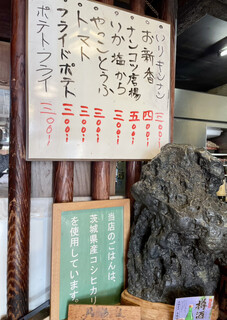 いりギンナン 三〇〇
お新香 四〇〇
ナンコツ唐揚 五〇〇
いか塩から 三〇〇
やっことうふ 三〇〇
トマト 三〇〇
フライドポテト 三〇〇
ポテトフライ 三〇〇
当店のごはんは、
茨城県産コシヒカリ
を使用しています。
梅酒